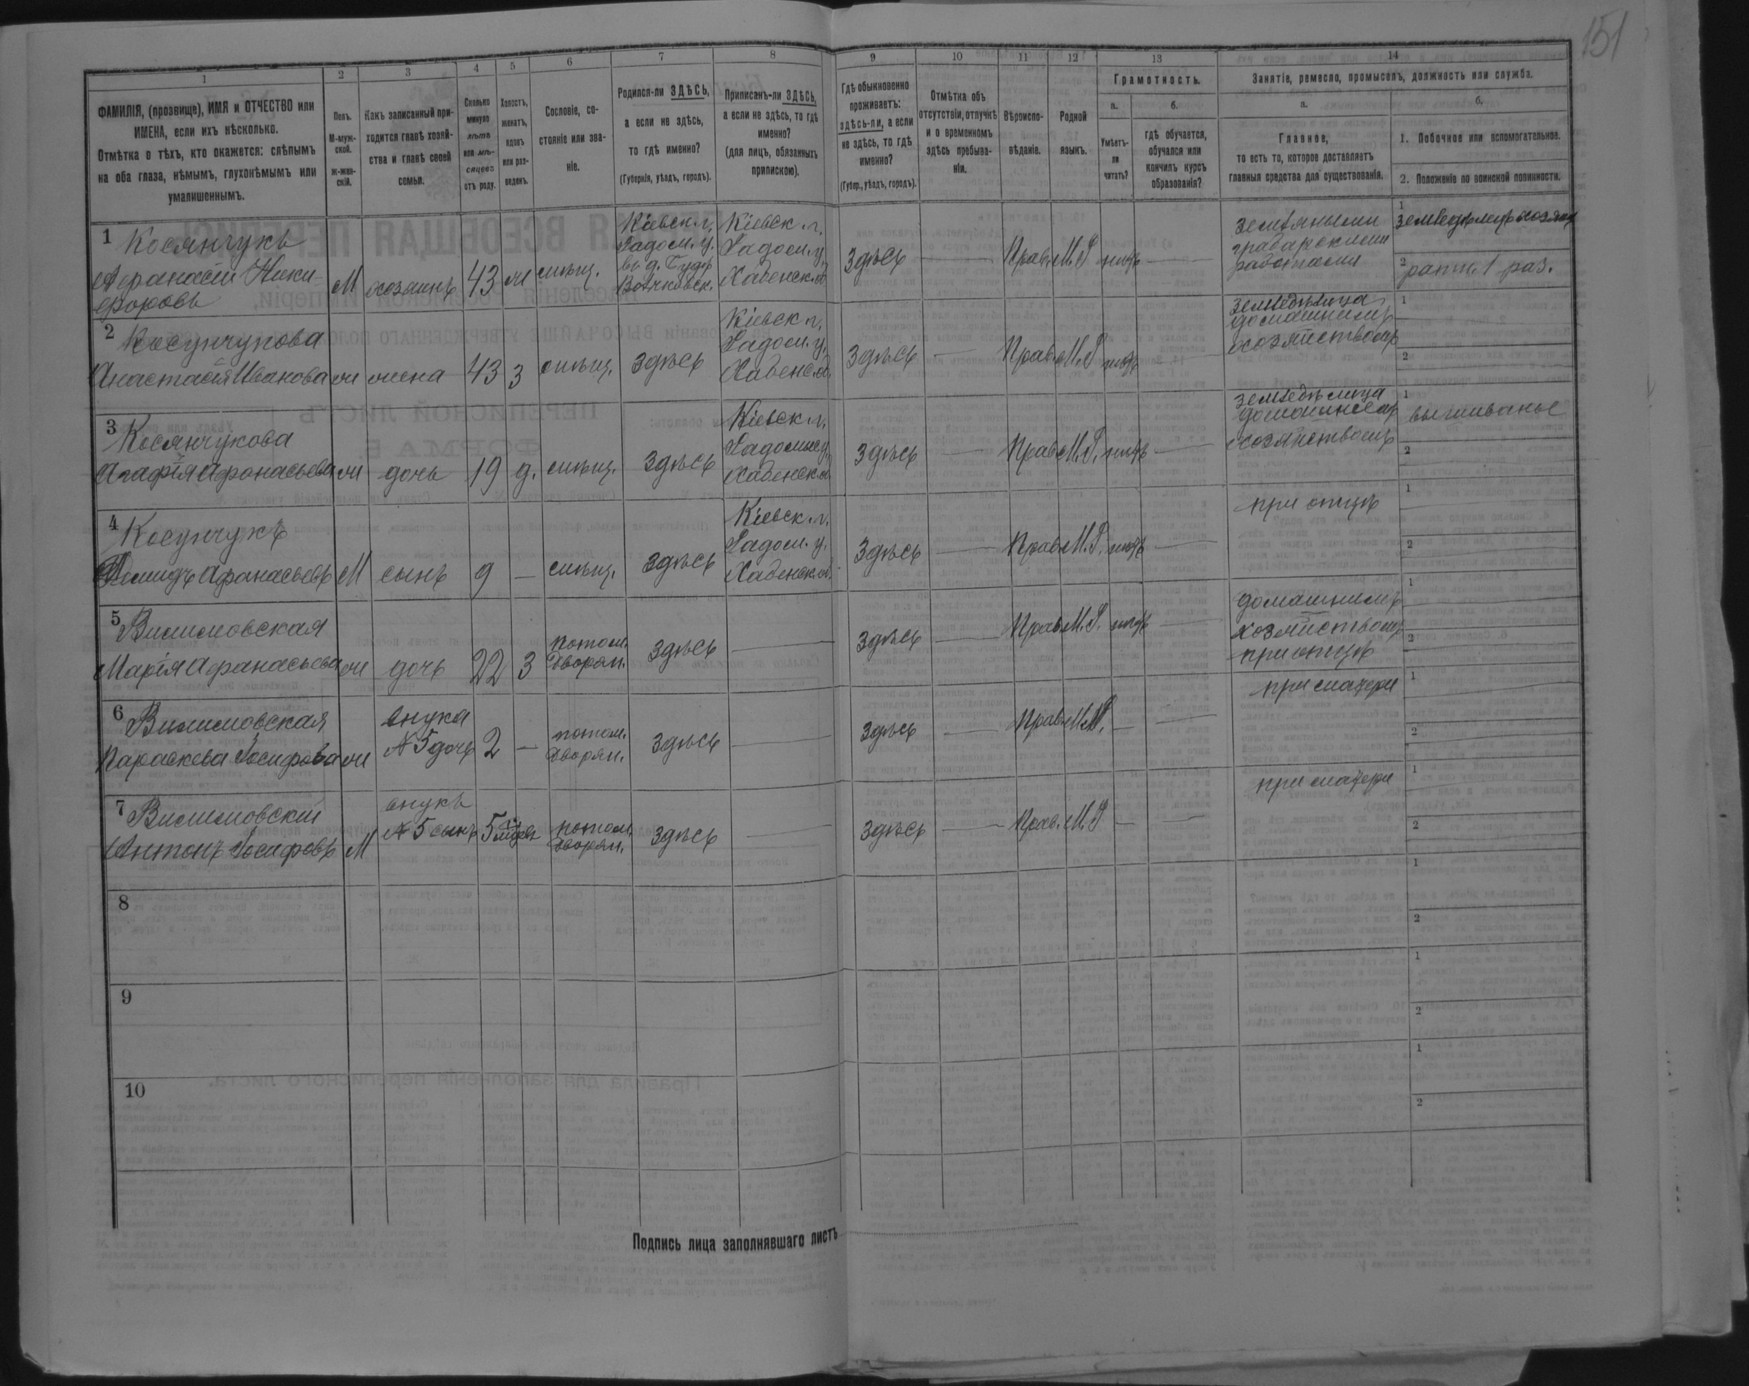 151
1 2 3 4 5 6 7 8 9 10 11 12 13 14
ФАМИЛІЯ, (прозвище), ИМЯ и ОТЧЕСТВО или
ИМЕНА, если ихъ нѣсколько.
Отмѣтка о тѣхъ, кто окажется: слѣпымъ
на оба глаза, нѣмымъ, глухонѣмымъ или
умалишеннымъ.
Полъ.
М-муж-
ской.
ж-жен-
скій.
Какъ записанный при-
ходится главѣ хозяй-
ства и главѣ своей
семьи.
Сколько
минуло
лѣтъ
или мѣ-
сяцевъ
отъ роду.
Холостъ,
женатъ,
вдовъ
или раз-
веденъ.
Сословіе, со-
стояніе или зва-
ніе.
Родился-ли ЗДѢСЬ,
а если не здѣсь,
то гдѣ именно?
(Губернія, уѣздъ, городъ).
Приписанъ-ли ЗДѢСЬ,
а если не здѣсь, то гдѣ
именно?
(для лицъ, обязанныхъ
припискою).
Гдѣ обыкновенно
проживаетъ:
здѣсь-ли, а если
не здѣсь, то гдѣ
именно?
(Губер., уѣздъ, городъ).
Отмѣтка объ
отсутствіи, отлучкѣ
и о временномъ
здѣсь пребыва-
ніи.
Вѣроиспо-
вѣданіе.
Родной
языкъ.
Грамотность.
а.
Умѣетъ-
ли
читать?
б.
гдѣ обучается,
обучался или
кончилъ курсъ
образованія?
Занятіе, ремесло, промыселъ, должность или служба.
а.
Главное,
то есть то, которое доставляетъ
главныя средства для существованія.
б.
1. Побочное или вспомогательное.
2. Положеніе по воинской повинности.
1 Косянчукъ
Афанасій Ники-
форовъ
М хозяинъ 43 ж мѣщ.
Кіевск. г.
Радом. у.
въ д. Буда
Кіевск. г.
Радом. у.
Хабенск.
здѣсь — Прав. М.Р. нѣтъ —
земляными
грабарскими
работами
1
2 ратн. 1 раз.
2 Косянчукова
Анастасія Иванова ж жена 43 з мѣщ. здѣсь
Кіевск. г.
Радом. у.
Хабенск.
здѣсь — Прав. М.Р. нѣтъ
земледѣлица
домашнимъ
хозяйствомъ
1
2
3 Косянчукова
Агафія Афанасьева ж дочь 19 д. мѣщ. здѣсь
Кіевск. г.
Радом. у.
Хабенск.
здѣсь — Прав. М.Р. нѣтъ —
земледѣлица
домашнимъ
хозяйствомъ
1 вышиванье
2
4 Косянчукъ
Афанасьевъ М сынъ 9 — мѣщ. здѣсь
Кіевск. г.
Радом. у.
Хабенск.
здѣсь — Прав. М.Р. нѣтъ —
при отцѣ
1
2
5 Вилимовская
Марія Афанасьева ж дочь 22 з потом.
дворян. здѣсь —
здѣсь — Прав. М.Р. нѣтъ —
домашнимъ
хозяйствомъ
при отцѣ
2
6 Вилимовская
Параскева Іосифова ж внука
№ 5 дочь 2 — потом.
дворян. здѣсь —
здѣсь — Прав. М.Р. — —
при матери
1
2
7 Вилимовскій
Антонъ Іосифовъ М внукъ
№ 5 сынъ 5 потом.
дворян. здѣсь —
здѣсь — Прав. М.Р. — —
при матери
1
2
8
1
2
9
1
2
10
1
2
Подпись лица заполнявшаго листъ